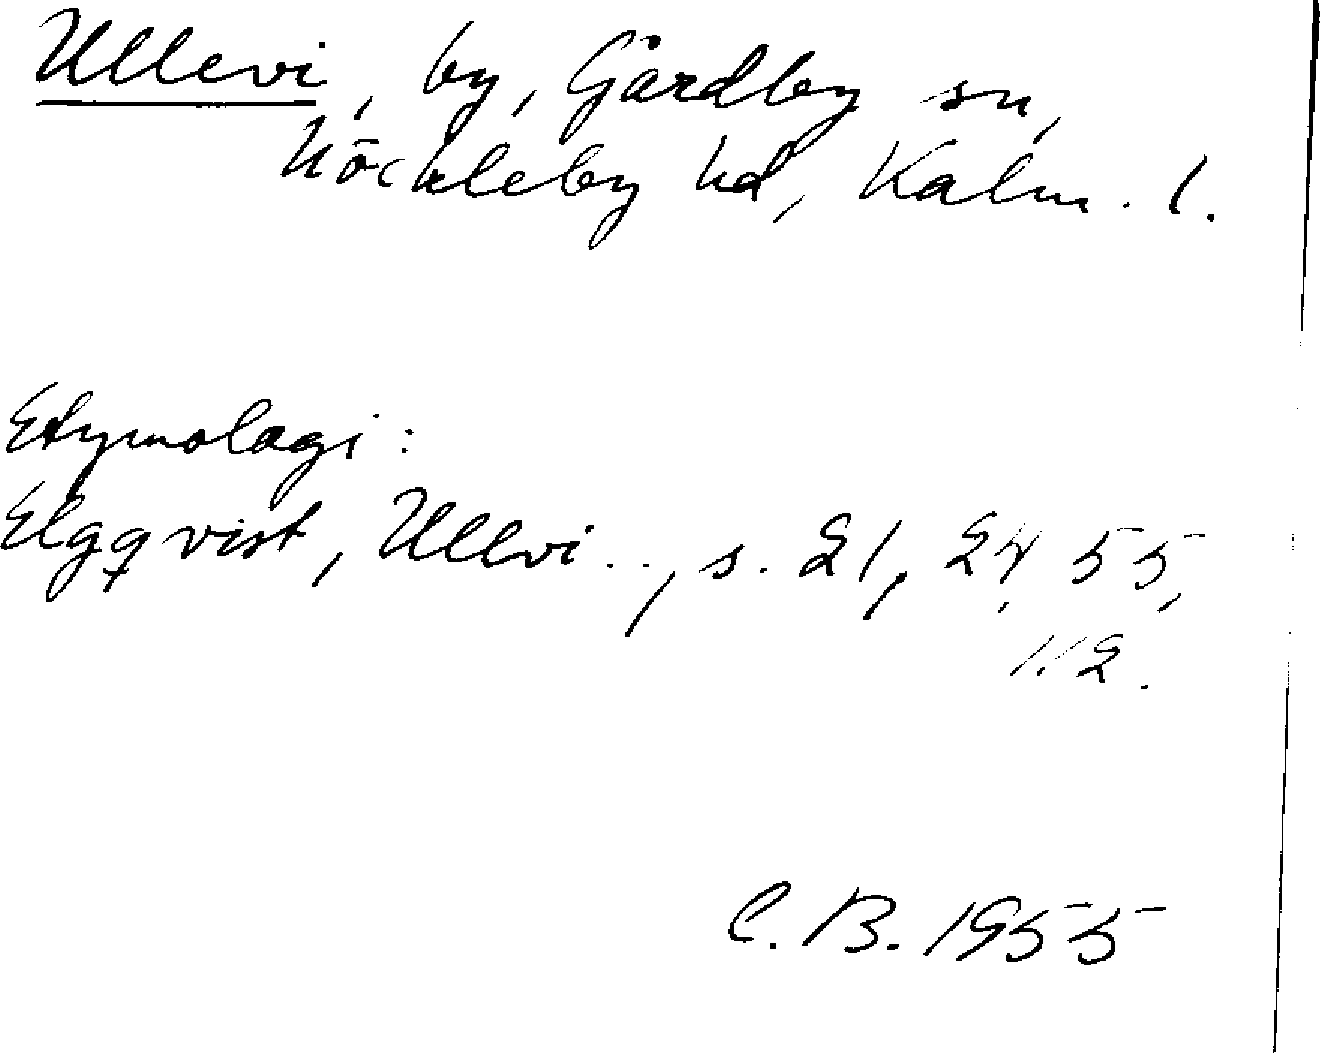 Ullevi, by, Gårdby sn,
Möckleby hd, Kalm. l.
Etymologi:
Elgqvist, Ullvi.., s. 21, 24, 55,
112.
C. B. 1955